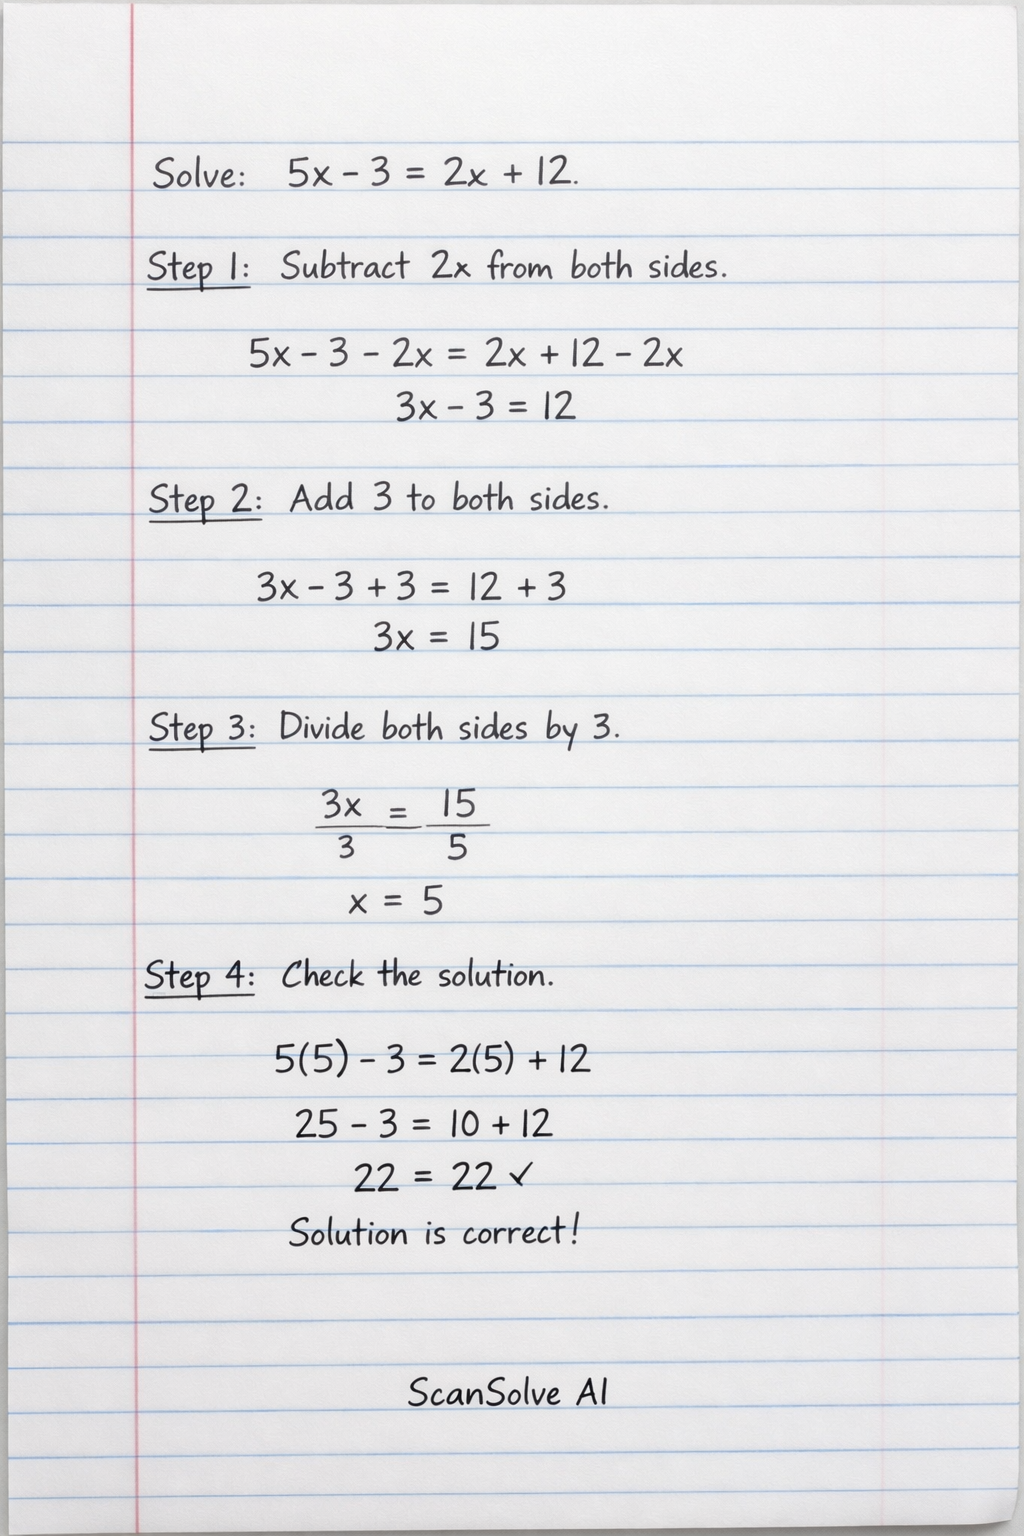 Solve: 5x - 3 = 2x + 12.
Step 1: Subtract 2x from both sides.
5x - 3 - 2x = 2x + 12 - 2x
3x - 3 = 12
Step 2: Add 3 to both sides.
3x - 3 + 3 = 12 + 3
3x = 15
Step 3: Divide both sides by 3.
3x = 15
3 5
x = 5
Step 4: Check the solution.
5(5) - 3 = 2(5) + 12
25 - 3 = 10 + 12
22 = 22 ✓
Solution is correct!
ScanSolve AI